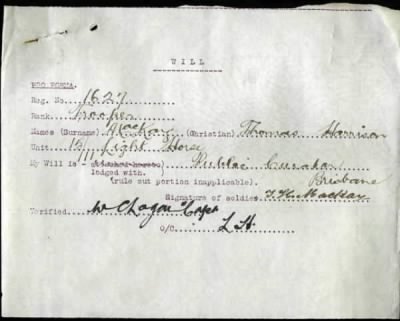 WILL
Reg. No. 1627
Rank. Trooper
Names (Surname) Mackay (Christian) Thomas Harrison
Unit 11 Light Horse
My Will is - attached hereto. Public Curator
lodged with. Brisbane
(rule out portion inapplicable).
Signature of soldier T H Mackay
Verified. Capt
O/C L H